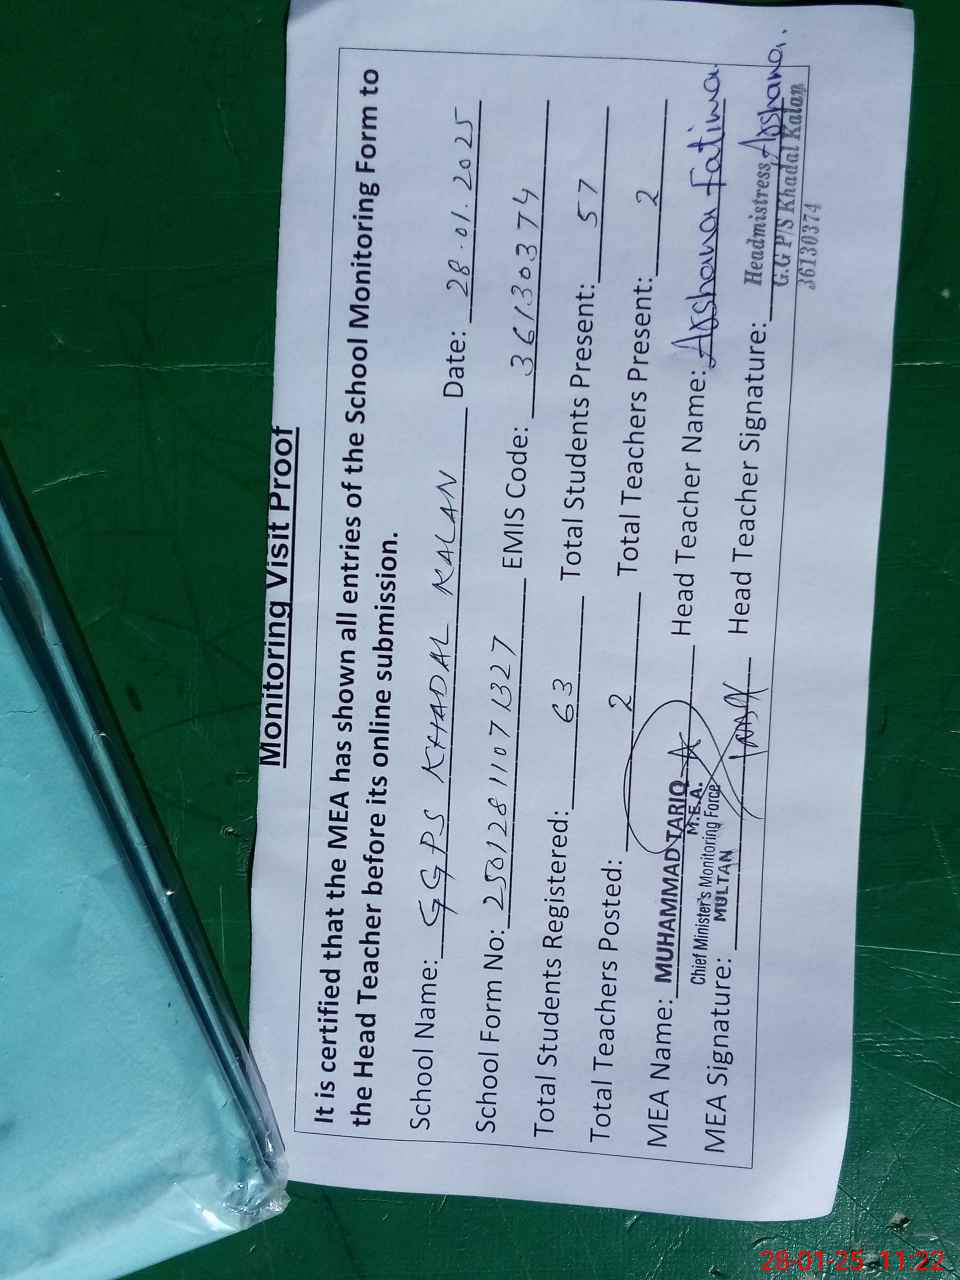 Monitoring Visit Proof
It is certified that the MEA has shown all entries of the School Monitoring Form to
the Head Teacher before its online submission.
School Name: GGPS KHADAL KALAN Date: 28.01.2025
School Form No: 2501281107 1327 EMIS Code: 36130374
Total Students Registered: 63 Total Students Present: 57
Total Teachers Posted: 2 Total Teachers Present: 2
MEA Name: MUHAMMAD TARIQ Head Teacher Name: Arshana Fatima
M.E.A.
Chief Minister's Monitoring Force
MULTAN
MEA Signature: Head Teacher Signature: Arshana.
Headmistress
G.G P/S Khadal Kalan
36130374
28-01-25 11:22